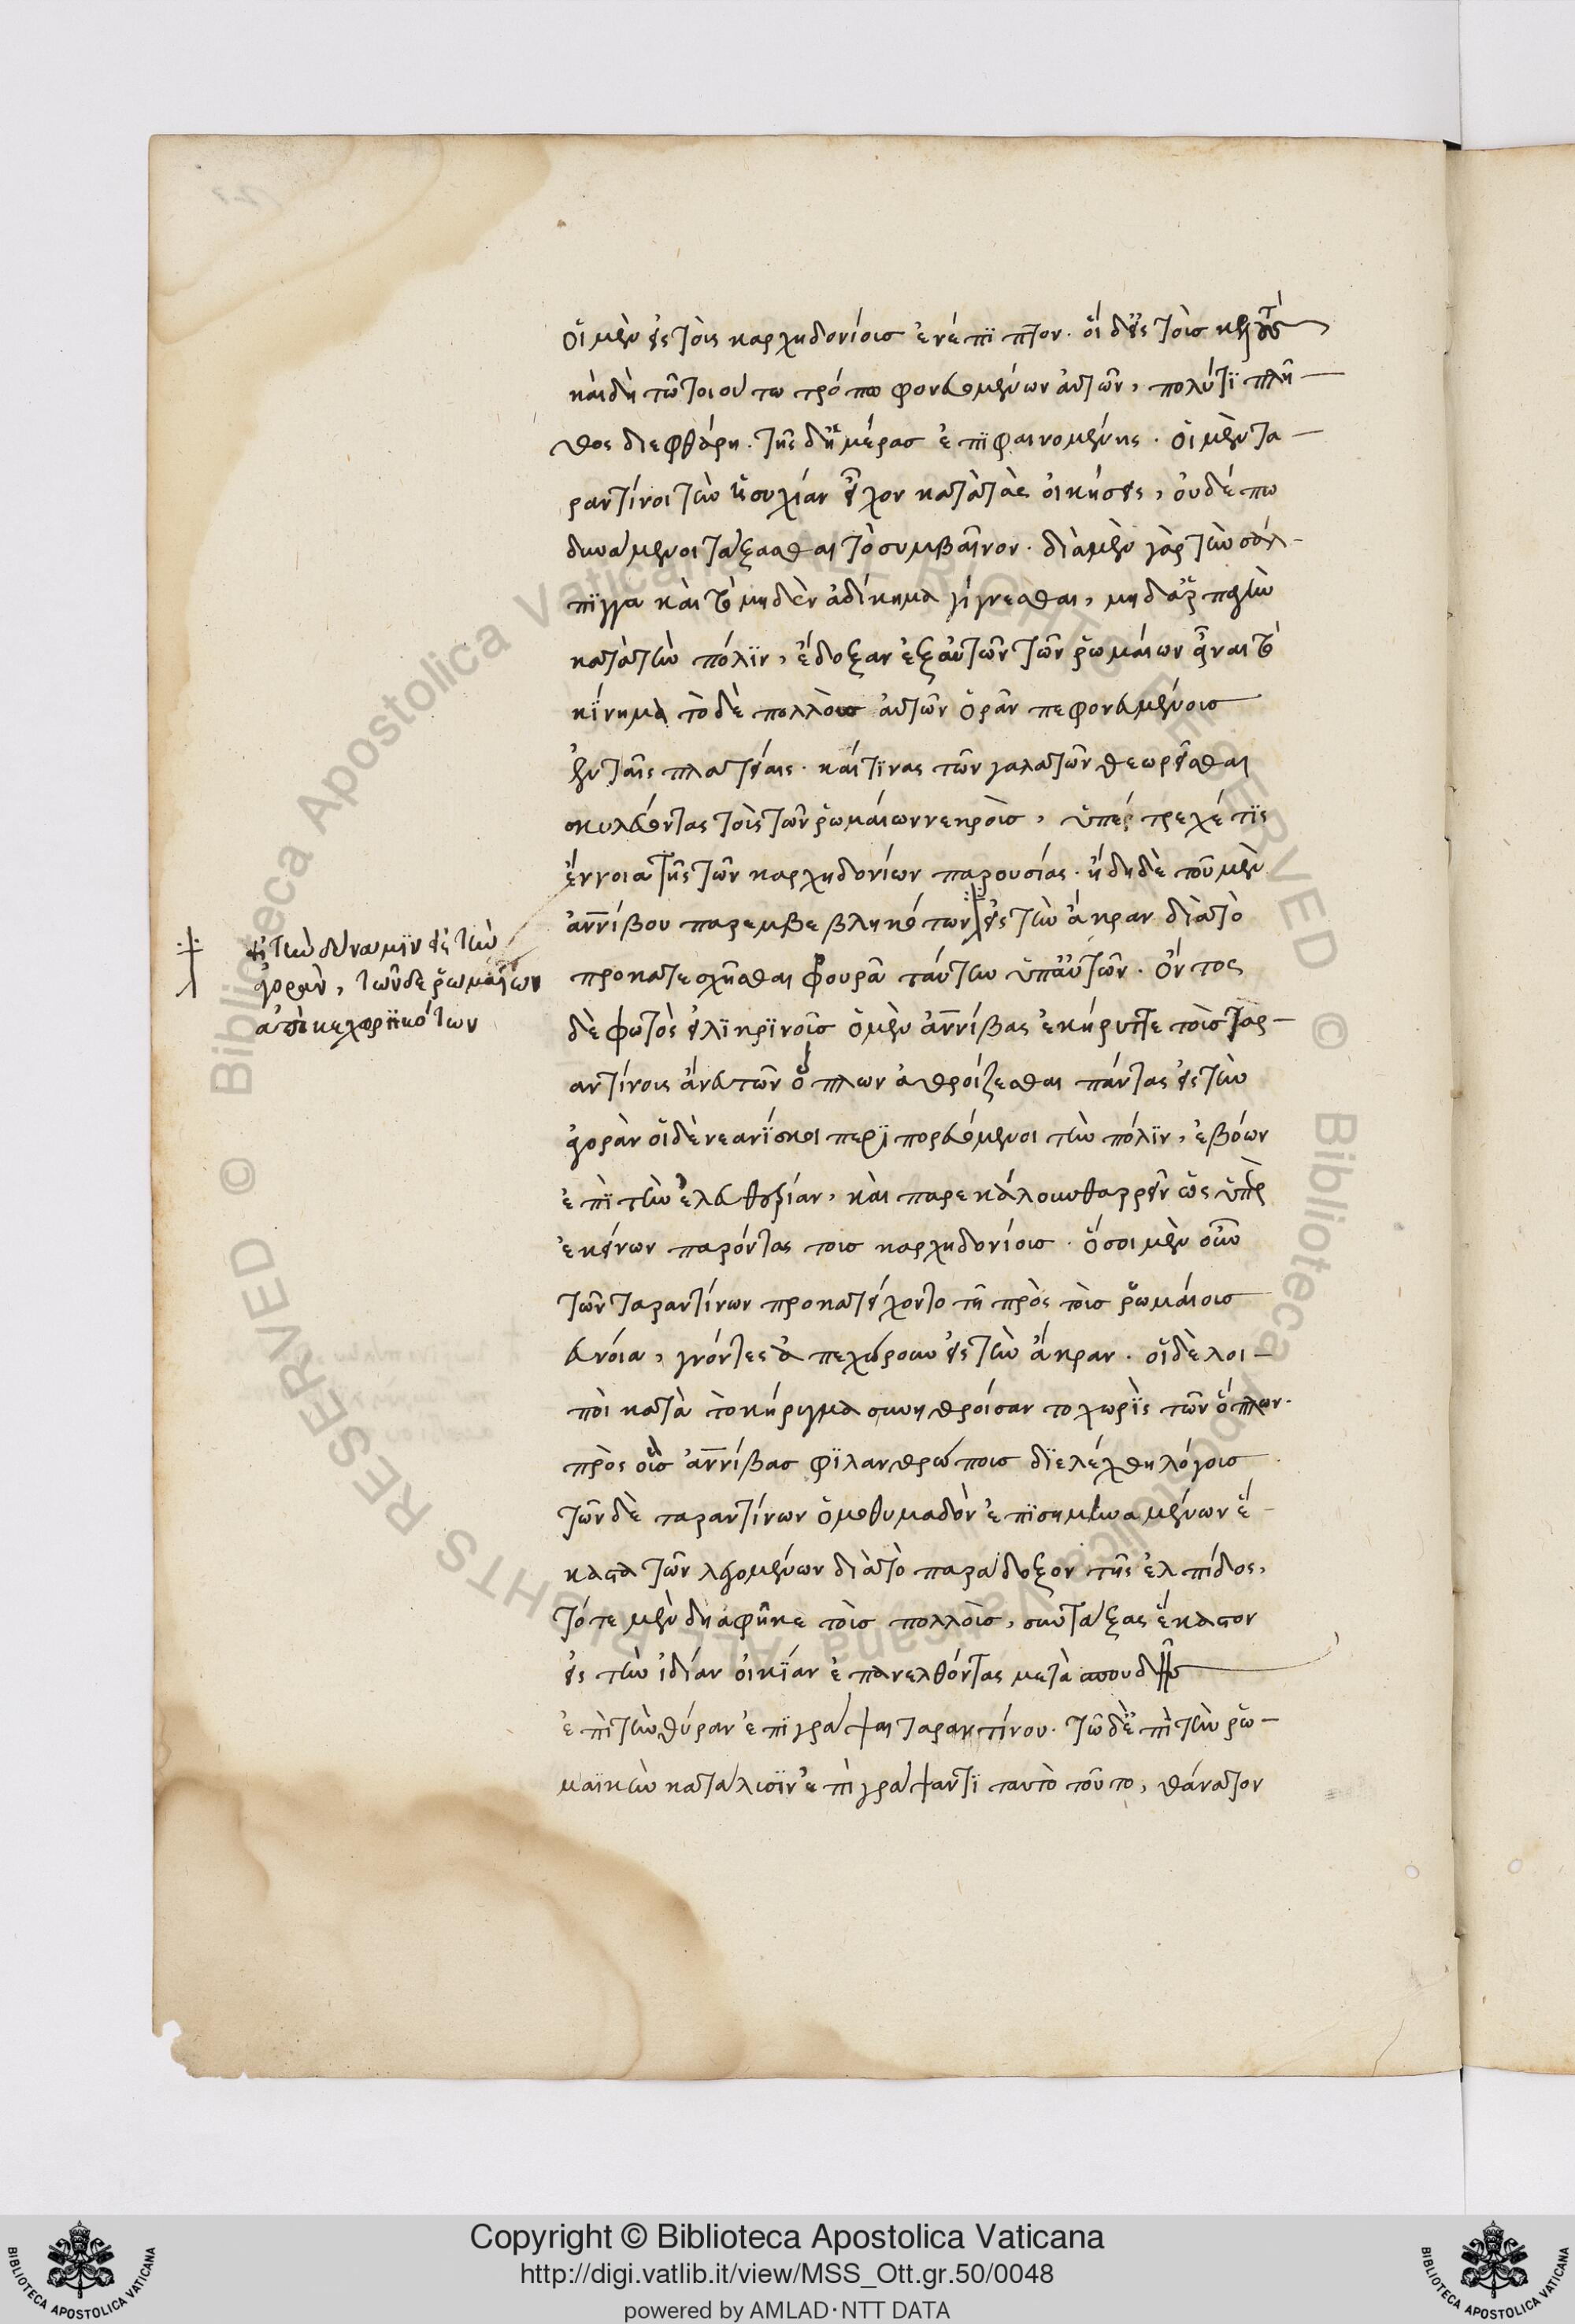 οἱ μὲν εἰς τοῖς καρχηδονίοις ἐνέπιπτον. οἱ δ' εἰς τοῖς κελτοῖς
καὶ δὴ τῶ τοιούτω τρόπω φονευομένων αὐτῶν, πολύ τι πλῆ-
θος διεφθάρη. τῆς δ' ἡμέρας ἐπιφαινομένης. οἱ μὲν τα-
ραντίνοι τὴν ἡσυχίαν εἶχον κατὰ τὰς οἰκήσεις, οὐδέπω
δυνάμενοι τάξασθαι τὸ συμβαῖνον. διὰ μὲν γὰρ τὴν σάλ-
πιγγα καὶ τὸ μηδὲν ἀδίκημα γίγνεσθαι, μηδ' ἁρπαγὴν
κατὰ τὴν πόλιν, ἔδοξαν ἐξ αὐτῶν τῶν ῥωμαίων εἶναι τὸ
κίνημα τὸ δὲ πολλοὺς αὐτῶν ὁρᾶν πεφονευμένοις
ἐν ταῖς πλατείαις. καί τινας τῶν γαλατῶν θεωρεῖσθαι
σκυλεύοντας τοῖς τῶν ῥωμαίων νεκροῖς, ὑπέρτρεχέ τις
ἔννοια τῆς τῶν καρχηδονίων παρουσίας. ἤδη δὲ τοῦ μὲν
ἀννίβου παρεμβεβληκότων εἰς τὴν ἄκραν διὰ τὸ
εἰ τὴν δύναμιν εἰς τὴν
ἀγορὰν, τῶν δὲ ῥωμαίων
ἀποκεχωρηκότων
προκατεσχῆσθαι φρουρᾶ ταύτην ὑπ' αὐτῶν. ὄντος
δὲ φωτὸς εἰλικρινοῖς ὁ μὲν ἀννίβας ἐκήρυττε τοῖς ταρ-
αντίνοις ἄνευ τῶν ὅπλων ἀθροίζεσθαι πάντας εἰς τὴν
ἀγορὰν οἱ δὲ νεανίσκοι περιπορευόμενοι τὴν πόλιν, ἐβόων
ἐπὶ τὴν ἐλευθερίαν, καὶ παρεκάλουν θαρρεῖν ὡς ὑπὲρ
ἐκείνων παρόντας τοις καρχηδονίοις. ὅσοι μὲν οὖν
τῶν ταραντίνων προκατείχοντο τῆ πρὸς τοῖς ῥωμαίοις
εὐνοία, γνόντες ἀπεχώρουν εἰς τὴν ἄκραν. οἱ δὲ λοι-
ποὶ κατὰ τὸ κήρυγμα συνηθροίσαν το χωρὶς τῶν ὅπλων.
πρὸς οἷς ἀννίβας φιλανθρώποις διελέχθη λόγοις
τῶν δὲ ταραντίνων ὁμοθυμαδὸν ἐπισημηναμένων ἕ-
καστα τῶν λεγομένων διὰ τὸ παράδοξον τῆς ἐλπίδος,
τότε μὲν διαφῆκε τοῖς πολλοῖς, συντάξας ἕκαστον
εἰς τὴν ἰδίαν οἰκίαν ἐπανελθόντας μετὰ σπουδῆς
ἐπὶ τὴν θύραν ἐπιγράψαι ταραντίνου. τῶ δὲ ἐπὶ τὴν ῥω-
μαϊκὴν κατάλυσιν ἐπιγράψαντι ταυτὸ τοῦτο, θάνατον
Copyright © Biblioteca Apostolica Vaticana
http://digi.vatlib.it/view/MSS_Ott.gr.50/0048
powered by AMLAD·NTT DATA